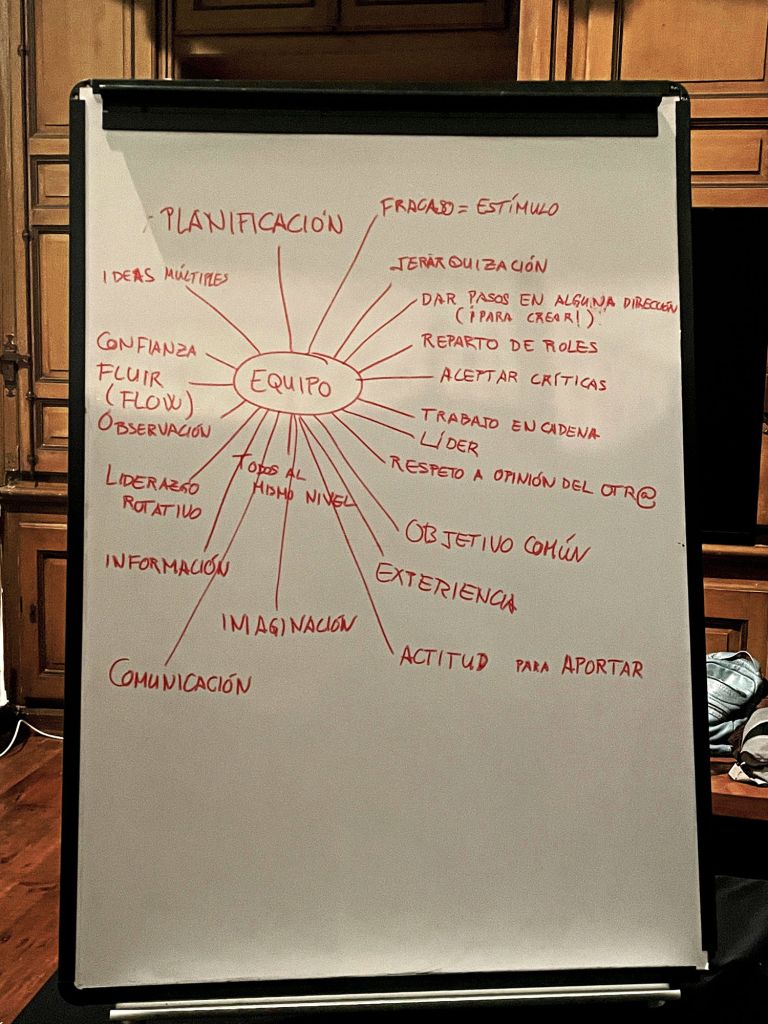 PLANIFICACIÓN
FRACASO = ESTÍMULO
IDEAS MÚLTIPLES
JERARQUIZACIÓN
DAR PASOS EN ALGUNA DIRECCIÓN
(¡PARA CREAR!)
CONFIANZA
REPARTO DE ROLES
FLUIR
(FLOW)
EQUIPO
ACEPTAR CRÍTICAS
OBSERVACIÓN
TRABAJO EN CADENA
LÍDER
LIDERAZGO
ROTATIVO
TODOS AL
MISMO NIVEL
RESPETO A OPINIÓN DEL OTR@
INFORMACIÓN
OBJETIVO COMÚN
EXTERIENCIA
IMAGINACIÓN
COMUNICACIÓN
ACTITUD PARA APORTAR